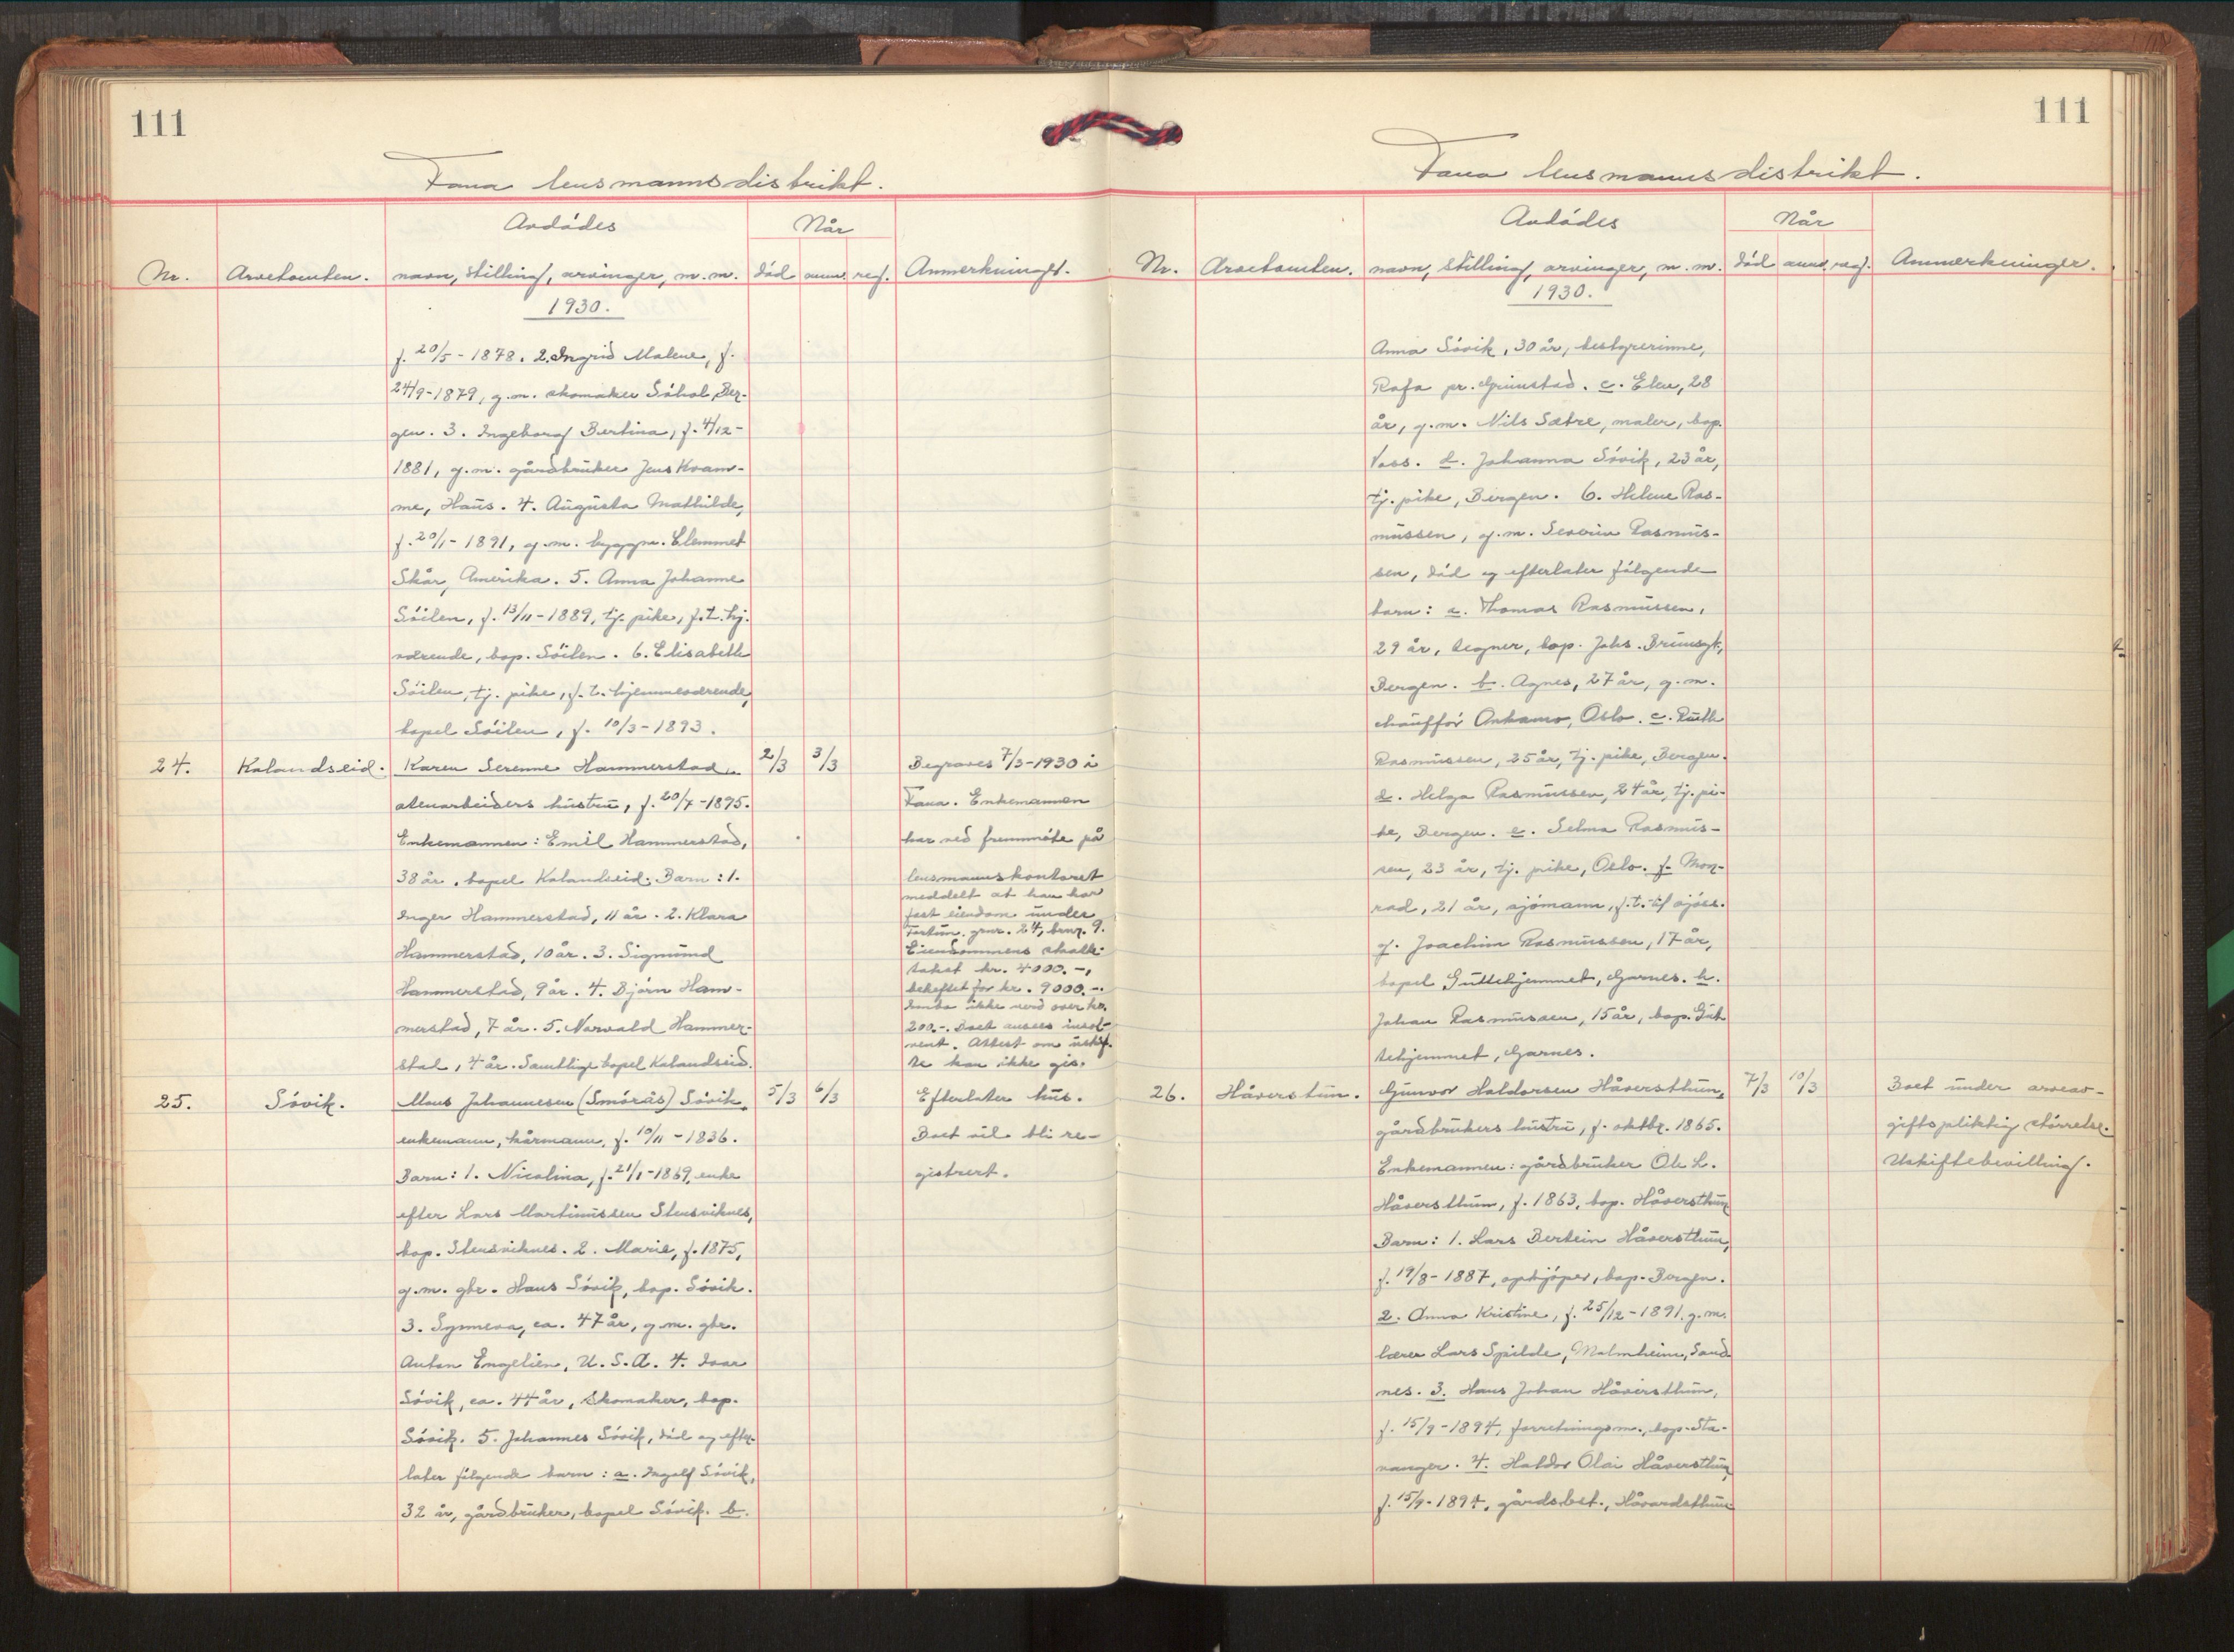 111
Fana lensmannsdistrikt.
Avdødes
Når
Nr. Arvetomten. navn, stilling, arvinger, m. m. død anm. reg. Anmerkninger.
1930.
f. 20/5 - 1878. 2. Ingrid Malene, f.
24/9 - 1879, g. m. skomaker Søhol, Ber-
gen. 3. Ingeborg Bertina, f. 4/12 -
1881, g. m. gårdbruker Jens Kvam-
me, Haus. 4. Augusta Mathilde,
f. 20/1 - 1891, g. m. byggm. Clemmet
Skår, Amerika. 5. Anna Johanne
Søilen, f. 13/11 - 1889, tj. pike, f. t. hj.
værende, bop. Søilen. 6. Elisabeth
Søilen, tj. pike, f. t. hjemmeværende,
bopel Søilen, f. 10/3 - 1893.
24. Kalandseid. Karen Serenne Hammerstad, 2/3 3/3
stenarbeiders hustru, f. 20/7 - 1895.
Enkemannen: Emil Hammerstad,
38 år, bopel Kalandseid. Barn: 1.
Inger Hammerstad, 11 år. 2. Klara
Hammerstad, 10 år. 3. Sigmund
Hammerstad, 9 år. 4. Bjørn Ham-
merstad, 7 år. 5. Norvald Hammer-
stad, 4 år. Samtlige bopel Kalandseid.
Begraves 7/3 - 1930 i
Fana. Enkemannen
har ved fremmøte på
lensmannskontoret
meddelt at han har
fast eiendom under
gnr. 24, brnr. 9.
Eiendommens skatte-
takst kr. 4000.-,
beheftet for kr. 9000.-.
Innbo ikke verd over kr.
200.-. Boet ansees insol-
vent. Attest om uskif-
te kan ikke gis.
25. Søvik. Mons Johannesen (Smörås) Søvik, 5/3 6/3
enkemann, kårmann, f. 10/11 - 1836.
Barn: 1. Nicolina, f. 21/1 - 1869, enke
efter Lars Martinussen Stensviknes,
bop. Stensviknes. 2. Marie, f. 1875,
g. m. gbr. Hans Søvik, bop. Søvik.
3. Synneva, ca. 47 år, g. m. gbr.
Anton Engelien, U. S. A. 4. Ivar
Søvik, ca. 44 år, skomaker, bop.
Søvik. 5. Johannes Søvik, død og efter-
later følgende barn: a. Ingolf Søvik,
32 år, gårdbruker, bopel Søvik. b.
Efterlater hus.
Boet vil bli re-
gistrert.
111
Fana lensmannsdistrikt.
Avdødes
Når
Nr. Arvetomten. navn, stilling, arvinger, m. m. død anm. reg. Anmerkninger.
1930.
Anna Søvik, 30 år, bestyrerinne,
Rafa pr. Grimstad. c. Elen, 28
år, g. m. Nils Sætre, maler, bop.
Voss. d. Johanna Søvik, 23 år,
tj. pike, Bergen. 6. Helene Ras-
mussen, g. m. Severin Rasmus-
sen, død og efterlater følgende
barn: a. Thomas Rasmussen,
29 år, tegner, bop. Johs. Brunsgt.,
Bergen. b. Agnes, 27 år, g. m.
chauffør Oslo. c. Ruth
Rasmussen, 25 år, tj. pike, Bergen.
d. Helga Rasmussen, 24 år, tj. pi-
ke, Bergen. e. Selma Rasmus-
sen, 23 år, tj. pike, Oslo. f. Mon-
rad, 21 år, sjømann, f. t. til sjøss.
g. Joachim Rasmussen, 17 år,
bopel Guttehjemmet, Garnes. h.
Johan Rasmussen, 15 år, bop. Gut-
tehjemmet, Garnes.
26. Håverstun. Gunvor Haldorsen Håversthun, 7/3 10/3
gårdbrukers hustru, f. oktbr. 1865.
Enkemannen: gårdbruker Ole L.
Håversthun, f. 1863, bop. Håversthun.
Barn: 1. Lars Bertein Håversthun,
f. 19/8 - 1887, opkjøper, bop. Bergen.
2. Anna Kristine, f. 25/12 - 1891, g. m.
lærer Lars Spilde, Malmheim, Sand-
nes. 3. Hans Johan Håversthun,
f. 15/9 - 1894, forretningsm., bop. Sta-
vanger. 4. Haldor Olai Håversthun,
f. 15/9 - 1894, gårdsbest., Håvardsthun
Boet under arveav-
giftspliktig størrelse.
Uskiftebevilling.